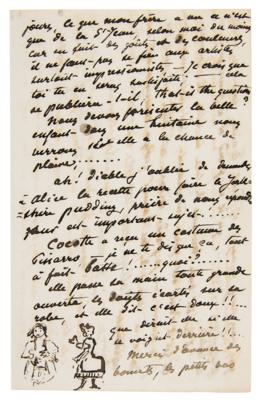 jours, ce que mon frère a vu ce n'est
que de la St Jean, selon moi du moins
car en fait des goûts et des couleurs,
il ne faut pas se fier aux artistes
surtout impressionistes — Je crois que
toi tu en seras satisfaite! — cela
se publiera-t-il? That is the question
Nous devons présenter la belle
enfant dans une huitaine nous
verrons si elle a la chance de
plaire,......
ah! Diable j'oublie de demander
à Alice la recette pour faire le York-
shire pudding, prière de nous répondre
sujet......
Cocotte a reçu un costume de
Pissarro — je ne te dis que ça, tout
à fait batte! .....quoi??.....
elle passe la main toute grande
ouverte, les doigts écartés sur sa
robe, et elle dit c'est doux!!....
que dirait-on si elle
se voyait derrière!!...
Merci d'avance des
bonnets, les petits bas